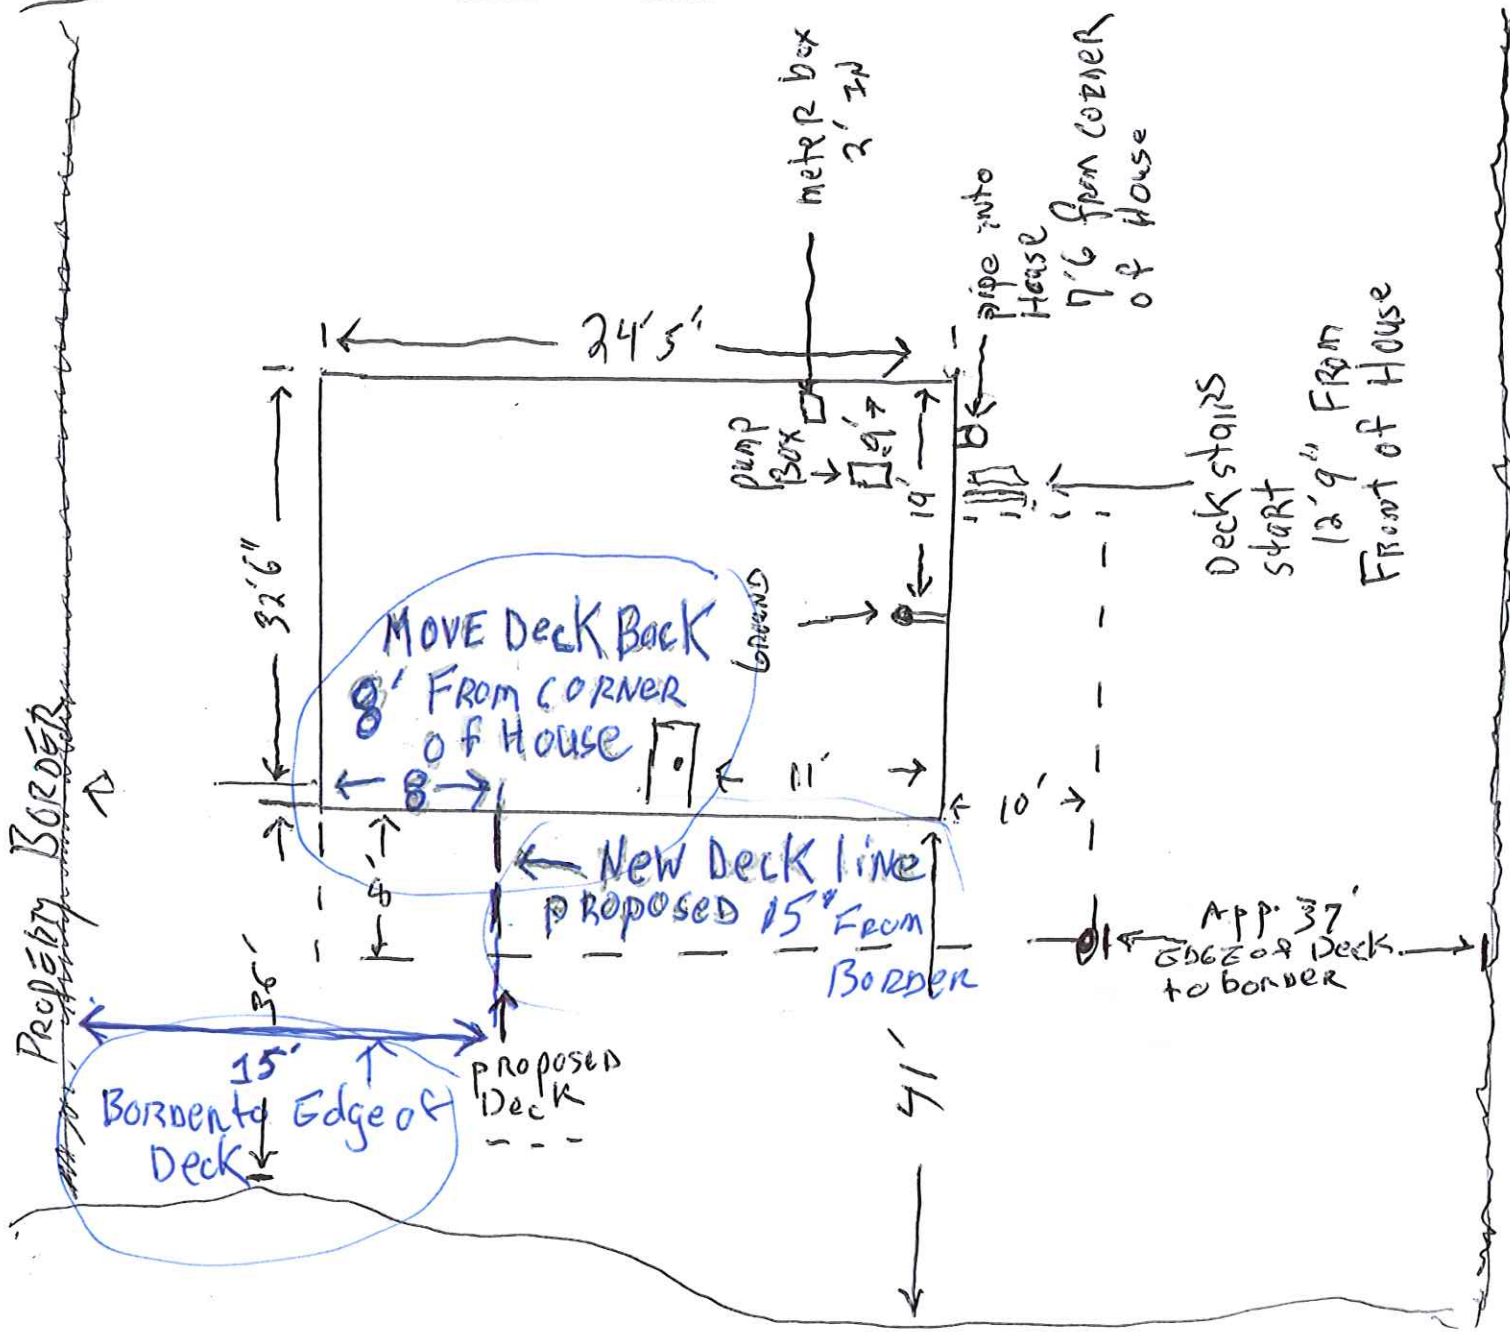 meter box
2' IN
pipe into
House
7'6 from CORNER
of House
24'5"
PUMP
BOX
9'
19'
32'6"
Deck stairs
start
12' 9" FROM
FRONT of House
GROUND
MOVE Deck Back
8' FROM CORNER
of House
8
11'
10'
PROPERTY BORDER
8'
NEW Deck line
PROPOSED 15" FROM
BORDER
App. 37'
EDGE of Deck
to border
36'
15'
Border to Edge of
Deck
PROPOSED
Deck
41'